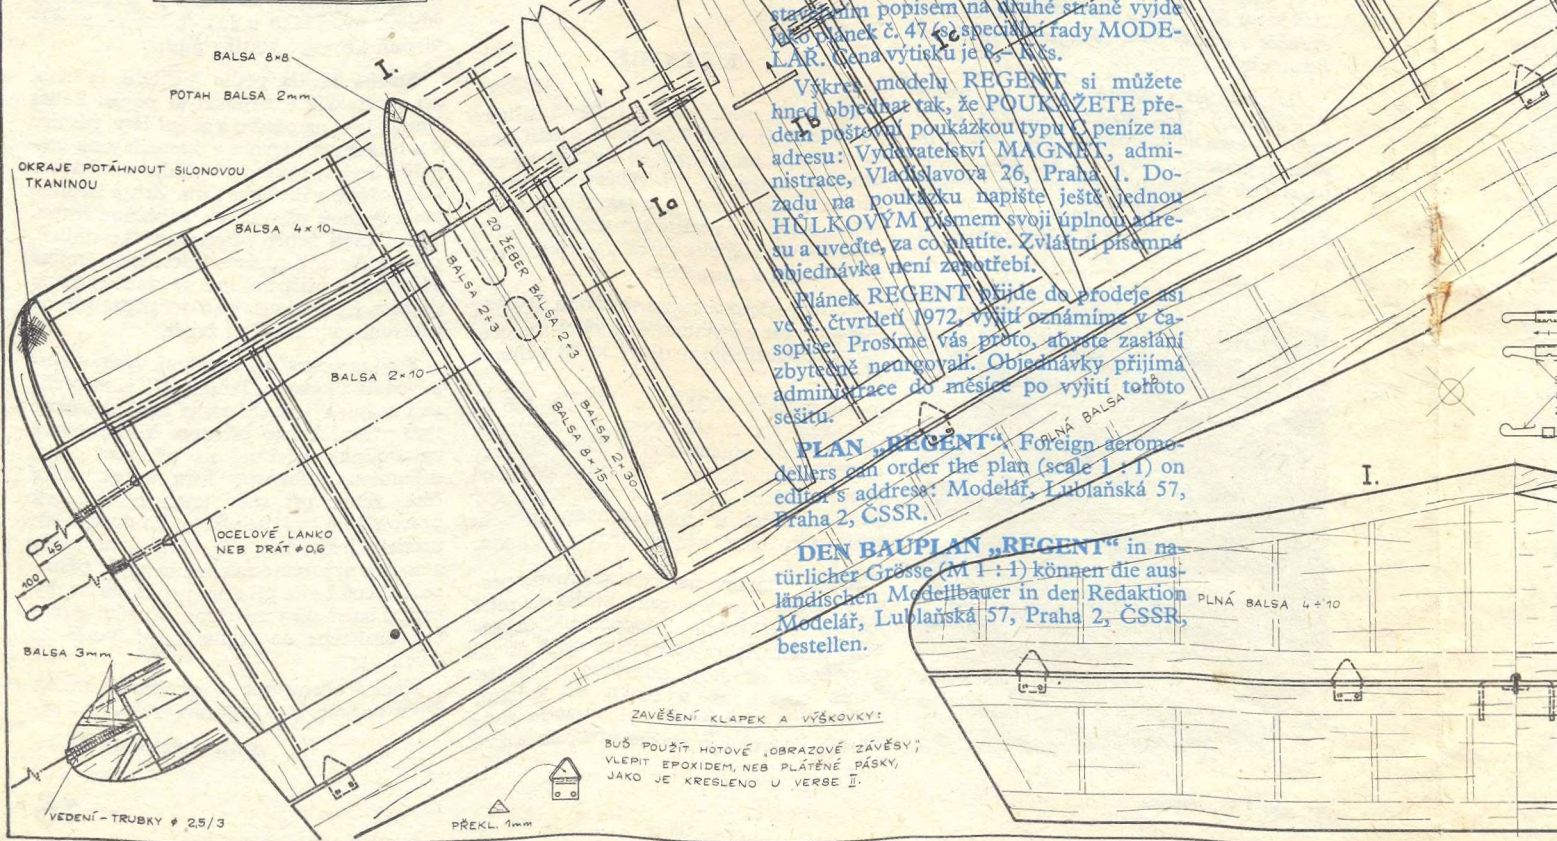 BALSA 8×8
POTAH BALSA 2mm
I.
OKRAJE POTÁHNOUT SILONOVOU
TKANINOU
BALSA 4×10
20 ŽEBER BALSA 2÷3
BALSA 2÷3
BALSA 2×10
BALSA 2×30
BALSA 8×15
Ia
Ib
Ic
OCELOVÉ LANKO
NEB DRÁT ø 0,6
45
100
BALSA 3mm
VEDENÍ - TRUBKY ø 2,5/3
PŘEKL. 1mm
ZAVĚŠENÍ KLAPEK A VÝŠKOVKY:
BUĎ POUŽÍT HOTOVÉ „OBRAZOVÉ ZÁVĚSY",
VLEPIT EPOXIDEM, NEB PLÁTĚNÉ PÁSKY,
JAKO JE KRESLENO U VERSE II.
stavebním popisem na druhé straně vyjde
jako plánek č. 47 (s) speciální řady MODE-
LÁŘ. Cena výtisku je 8,– Kčs.
Výkres modelu REGENT si můžete
hned objednat tak, že POUKÁŽETE pře-
dem poštovní poukázkou typu C peníze na
adresu: Vydavatelství MAGNET, admi-
nistrace, Vladislavova 26, Praha 1. Do-
zadu na poukázku napište ještě jednou
HŮLKOVÝM písmem svoji úplnou adre-
su a uveďte, za co platíte. Zvláštní písemná
objednávka není zapotřebí.
Plánek REGENT přijde do prodeje asi
ve čtvrtletí 1972, vyjití oznámíme v ča-
sopise. Prosíme vás proto, abyste zaslání
zbytečně neurgovali. Objednávky přijímá
administrace do měsíce po vyjití tohoto
sešitu.
PLAN „REGENT“. Foreign aeromo-
dellers can order the plan (scale 1 : 1) on
editor's address: Modelář, Lublaňská 57,
Praha 2, ČSSR.
DEN BAUPLAN „REGENT“ in na-
türlicher Grösse (M 1 : 1) können die aus-
ländischen Modellbauer in der Redaktion
Modelář, Lublaňská 57, Praha 2, ČSSR,
bestellen.
PLNÁ BALSA
I.
PLNÁ BALSA 4÷10